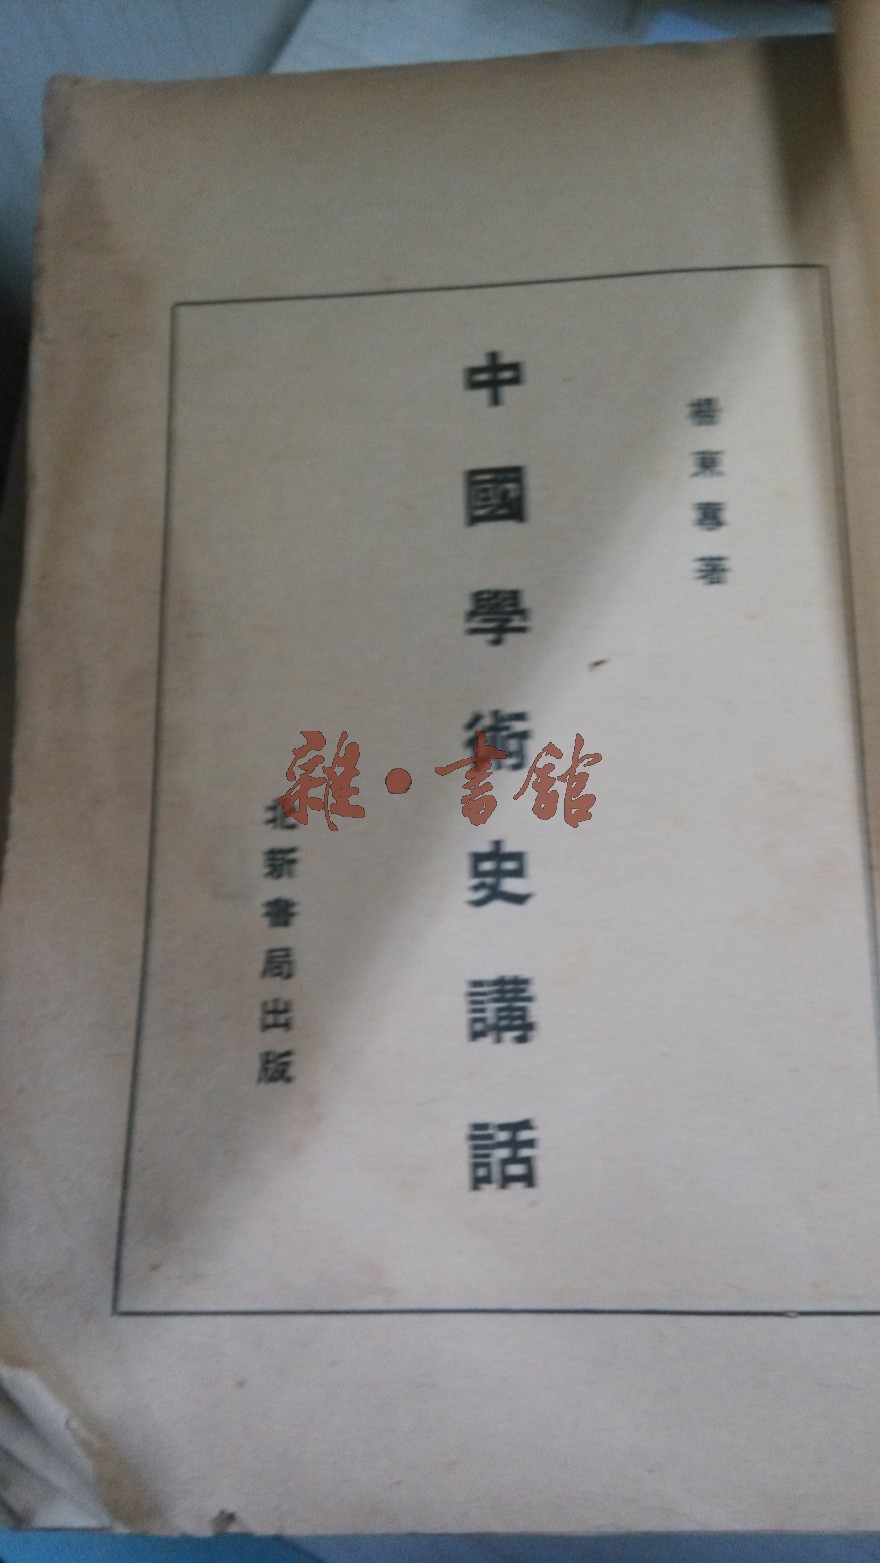 楊東蓴著
中國學術史講話
北新書局出版
雜·書館